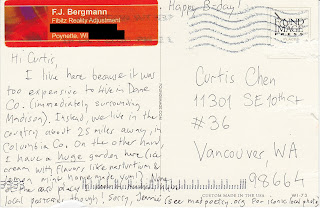 F.J. Bergmann
Fibitz Reality Adjustment
Poynette, WI
Happy B-day!
Hi Curtis,
I live here because it was
too expensive to live in Dane
Co. (immediately surrounding
Madison). Instead, we live in the
country about 25 miles away, in
Columbia Co. On the other hand,
I have a huge garden here (ice
cream with flavors like nasturtium &
lemon mint home made yum!). 
local postcards though! Sorry, Jeannie
(see madpoetry.org for iconic local photo
Curtis Chen
11301 SE 10th St
#36
Vancouver, WA
98664
FOUND
IMAGE
PRESS
WI-73